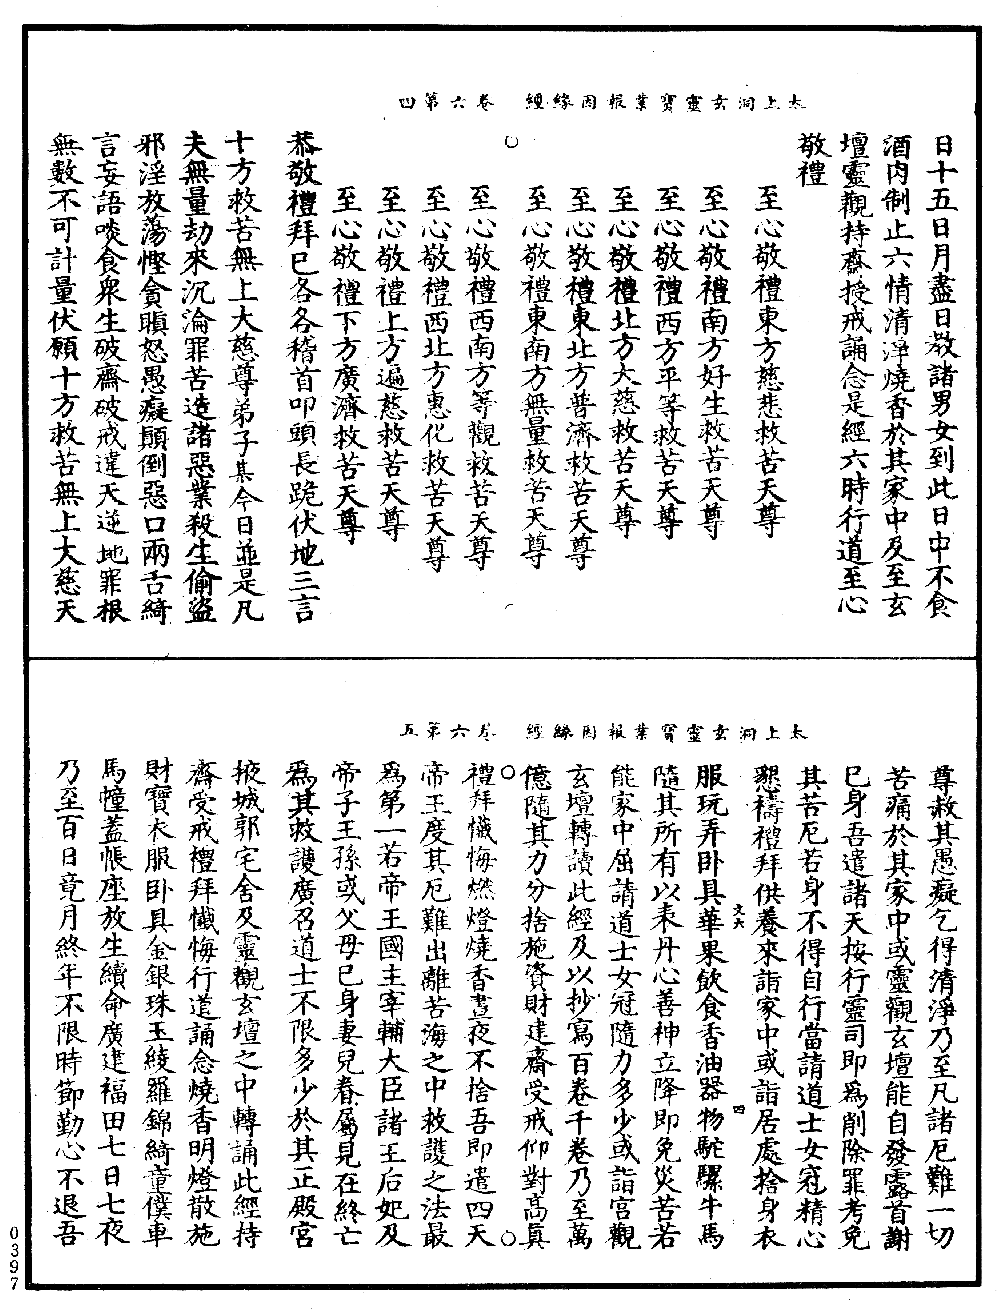 太上洞玄靈寶業報因緣經　卷六第四
日十五日月盡日教諸男女到此日中不食
酒肉制止六情清淨燒香於其家中及至玄
壇靈觀持齋授戒誦念是經六時行道至心
敬禮
至心敬禮東方慈悲救苦天尊
至心敬禮南方好生救苦天尊
至心敬禮西方平等救苦天尊
至心敬禮北方大慈救苦天尊
至心敬禮東北方普濟救苦天尊
至心敬禮東南方無量救苦天尊
至心敬禮西南方等觀救苦天尊
至心敬禮西北方惠化救苦天尊
至心敬禮上方遍慈救苦天尊
至心敬禮下方廣濟救苦天尊
恭敬禮拜已各各稽首叩頭長跪伏地三言
十方救苦無上大慈尊弟子某今日並是凡
夫無量劫來沉淪罪苦造諸惡業殺生偷盜
邪淫放蕩慳貪瞋怒愚癡顛倒惡口兩舌綺
言妄語啖食眾生破齋破戒違天逆地罪根
無數不可計量伏願十方救苦無上大慈天
太上洞玄靈寶業報因緣經　卷六第五
尊赦其愚癡乞得清淨乃至凡諸厄難一切
苦痛於其家中或靈觀玄壇能自發露首謝
已身吾遣諸天按行靈司即為削除罪考免
其苦厄若身不得自行當請道士女冠精心
懇禱禮拜供養來詣家中或詣居處捨身衣
文大　四
服玩弄卧具華果飲食香油器物駝騾牛馬
隨其所有以表丹心善神立降即免災苦若
能家中屈請道士女冠隨力多少或詣宮觀
玄壇轉讀此經及以抄寫百卷千卷乃至萬
億隨其力分捨施資財建齋受戒仰對高真
禮拜懺悔燃燈燒香晝夜不捨吾即遣四天
帝王度其厄難出離苦海之中救護之法最
為第一若帝王國主宰輔大臣諸王后妃及
帝子王孫或父母已身妻兒眷屬見在終亡
為其救護廣召道士不限多少於其正殿宮
掖城郭宅舍及靈觀玄壇之中轉誦此經持
齋受戒禮拜懺悔行道誦念燒香明燈散施
財寶衣服卧具金銀珠玉綾羅錦綺童僕車
馬幢蓋帳座放生續命廣建福田七日七夜
乃至百日竟月終年不限時節勤心不退吾
0397